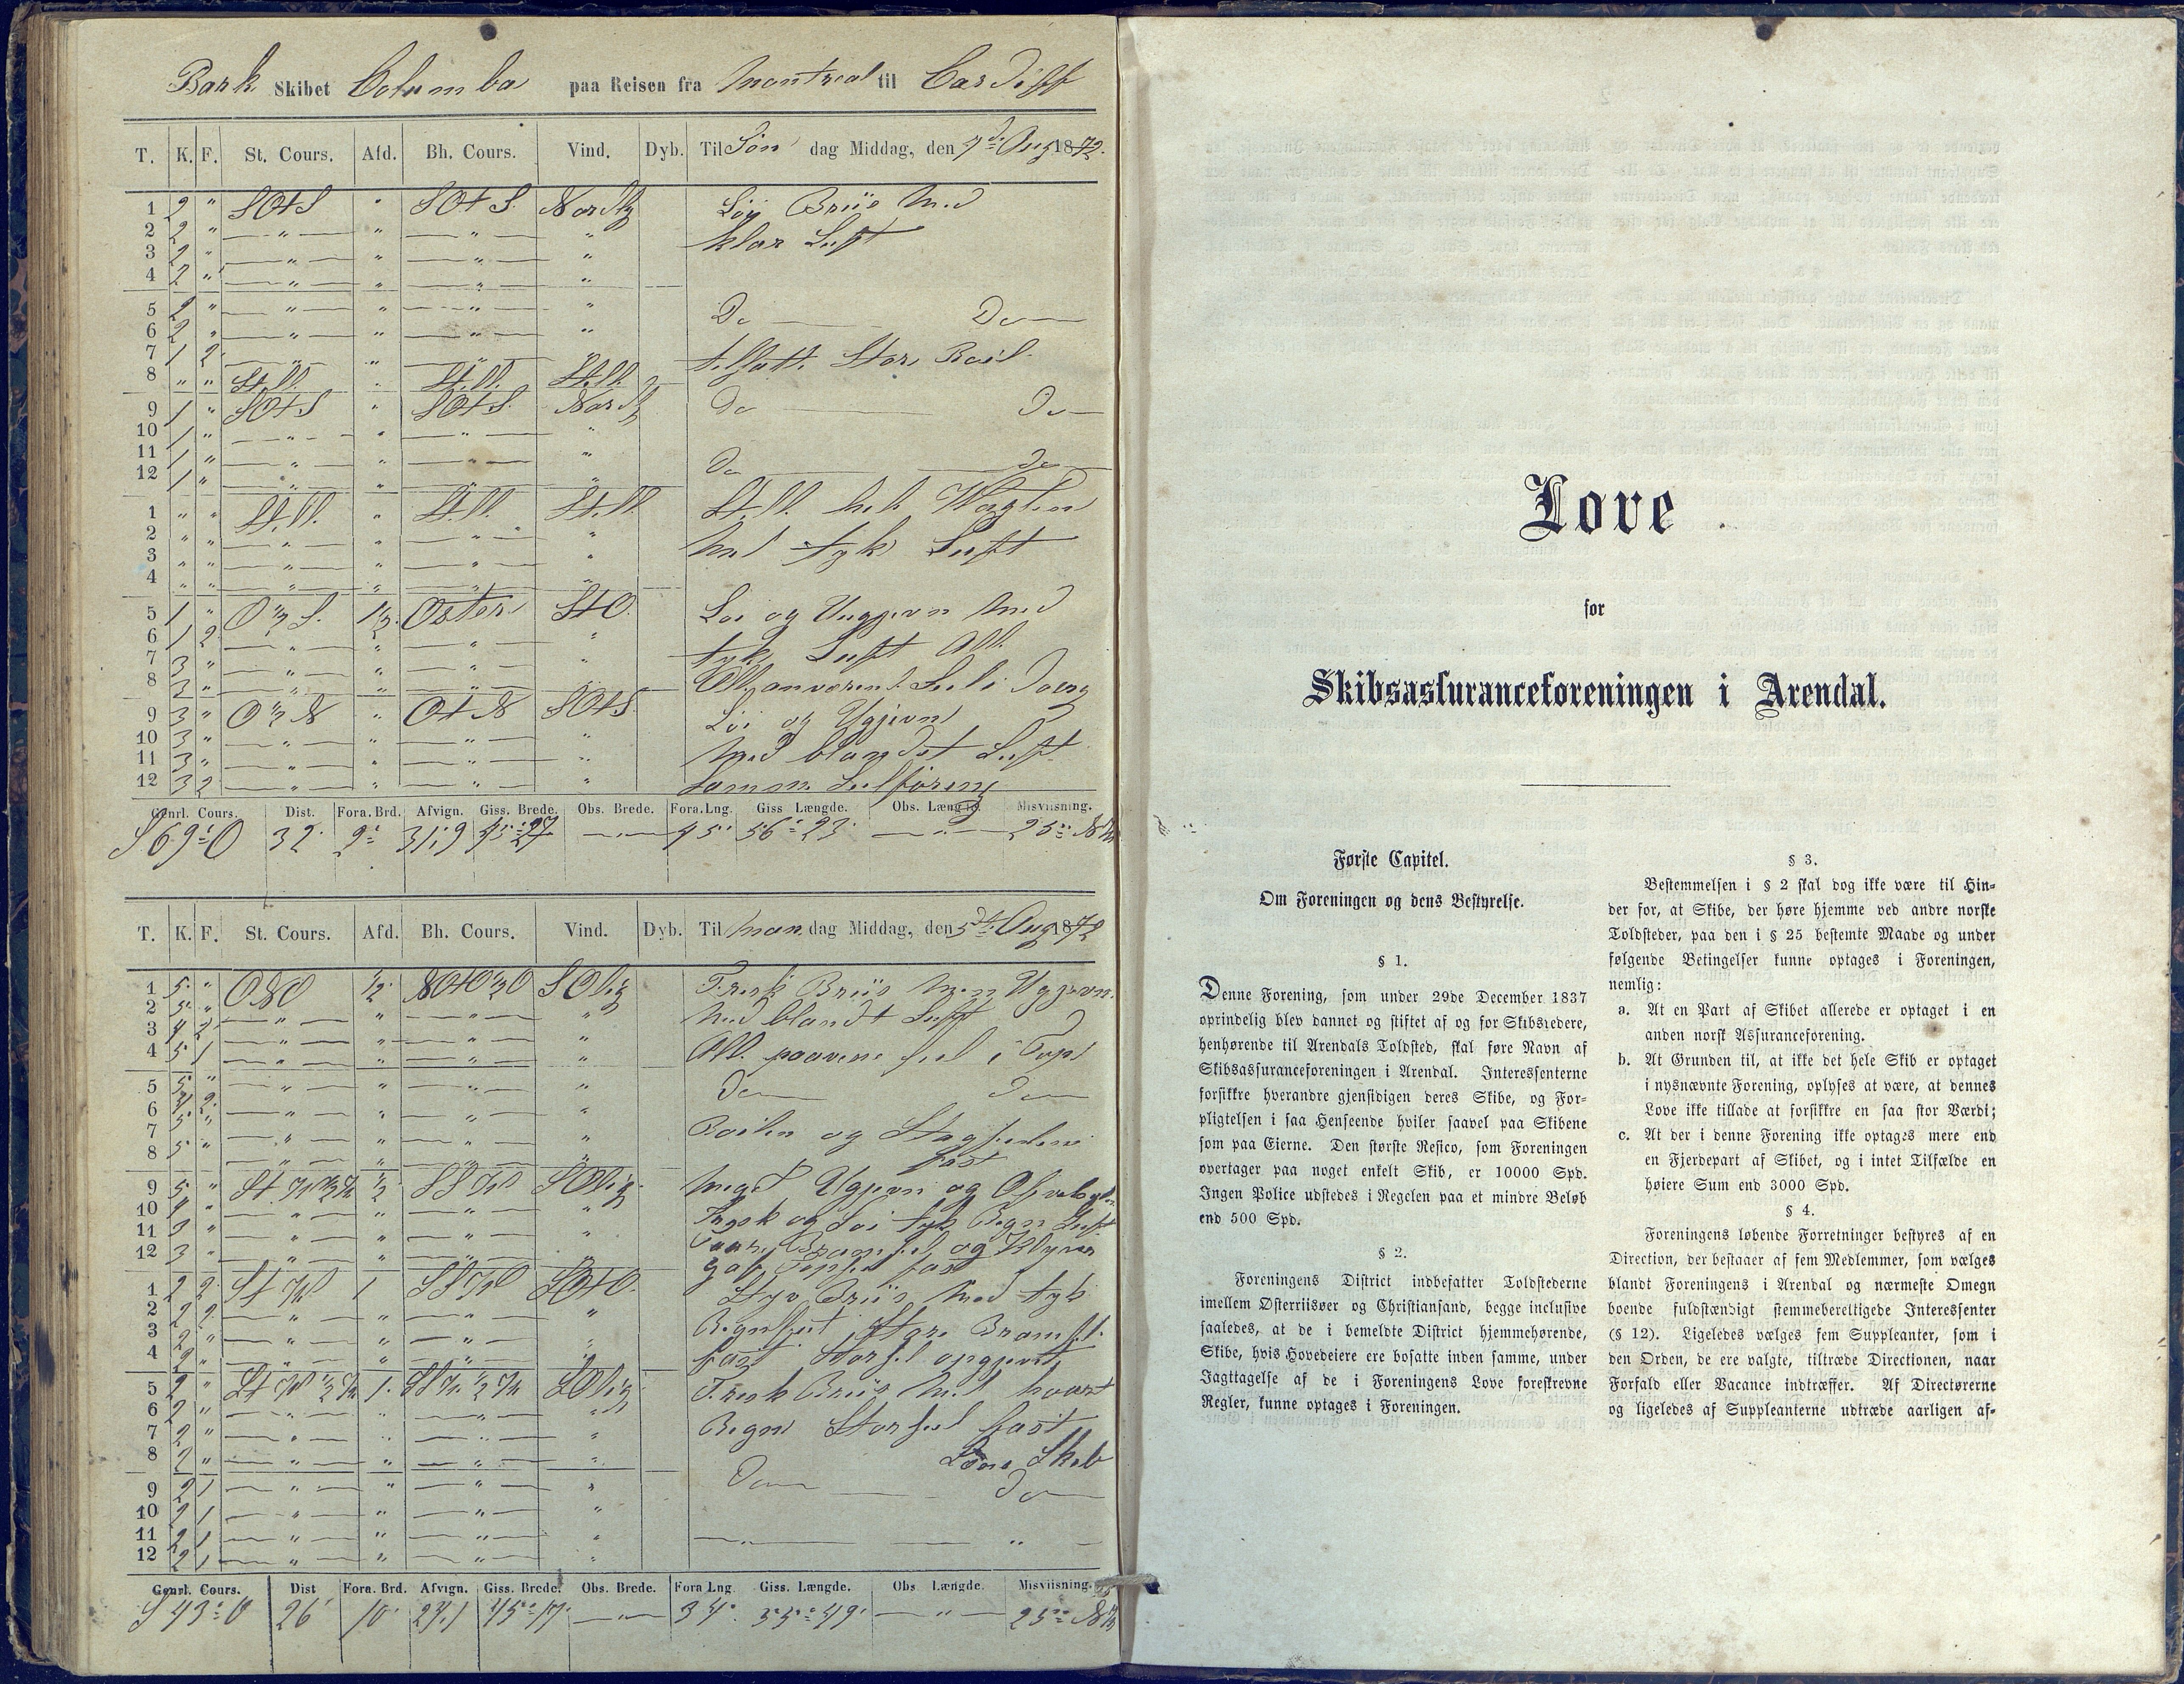 Bark Skibet Columba paa Reisen fra Montreal til Cardiff
T. K. F. St. Cours. Afd. Bh. Cours. Vind. Dyb. Til Søn dag Middag, den 4de Aug 1872.
1 2 " SOtS " SOtS. Nordlig Løj Briis Med
2 2 " — " — " — " — " klar Luft
3 2 " — " — " — " — "
4 2 " — " — " — " — "
5 2 " — " — " — " — " Do — Do —
6 2 " — " — " — " — "
7 1 2 — " — " — " — " Store
8 " " Still. " Still. Still.
9 1 " SOtS " SOtS. Nordlig Do — Do —
10 1 " — " — " — " — "
11 1 " — " — " — " — " Do — Do —
12 1 " — " — " — " — "
1 " " Still. " Still. Still. Still
2 " " — " — " — " — " Med tyk Luft
3 " " — " — " — " — "
4 " " — " — " — " — "
5 1 " O ½ S. ½ Osten StO. Loi og Med
6 1 2 — " — " — " — " tyk Luft All.
7 3 " — " — " — " — "
8 3 " — " — " — " — "
9 3 " O ½ N " OtN SOtS. Loi og Ugjevn
10 3 " — " — " — " — " Med blandet Luft
11 3 " — " — " — " — "
12 3 2 — " — " — " — " Samme Seilføring
Genrl. Cours. Dist. Fora. Brd. Afvign. Giss. Brede. Obs. Brede. Fora. Lng. Giss Længde. Obs. Længde. Misviisning.
S 69° O 32 31,9 45° 27 — " — 45' 56° 23' — " — 25°
T. K. F. St. Cours. Afd. Bh. Cours. Vind. Dyb. Til Man dag Middag, den 5te Aug 1872
1 5 " ONO ½ NOtO ½ O SOlig Frisk Briis Men Ugjevn
2 5 " — " — " — " — " Med blandt Luft
3 4 2 — " — " — " — "
4 5 1 — " — " — " — " All.
5 5 " — " — " — " — " Do — Do —
6 4 2 — " — " — " — "
7 5 " — " — " — " — " og
8 5 " — " — " — " — " fast
9 5 " ½ SSW SOlig Meget Ugjevn og
10 4 " — " — " — " — " Frisk og Loi tyk Regn Luft
11 3 " — " — " — " — " og Klyver
12 3 " — " — " — " — " fast
1 2 2 StW 1 SSW SOtO. Briis Med tyk
2 2 2 — " — " — " — " Store Bramseil
3 2 " — " — " — " — "
4 2 " — " — " — " — " fast Storseil
5 2 " 1. SOlig Frisk Briis Med
6 2 " — " — " — " — " Regn Storseil fast
7 2 " — " — " — " — "
8 2 " — " — " — " — "
9 2 1 — " — " — " — " Do — Do —
10 2 1 — " — " — " — "
11 2 1 — " — " — " — " — " — " —
12 2 1 — " — " — " — "
Genrl. Cours. Dist Fora. Brd. Afvign. Giss. Brede. Obs. Brede. Fora Lng. Giss. Længde. Obs Længde. Misviisning.
S 43° O 26' 10' 24,1 45° 17' — " — 34' 55° 49' — " — 25°
Love
for
Skibsassuranceforeningen i Arendal.
Første Capitel.
Om Foreningen og dens Bestyrelse.
§ 1.
Denne Forening, som under 29de December 1837
oprindelig blev dannet og stiftet af og for Skibsredere,
henhørende til Arendals Toldsted, skal føre Navn af
Skibsassuranceforeningen i Arendal. Interessenterne
forsikkre hverandre gjensidigen deres Skibe, og For-
pligtelsen i saa Henseende hviler saavel paa Skibene
som paa Eierne. Den største Resico, som Foreningen
overtager paa noget enkelt Skib, er 10000 Spd.
Ingen Police udstedes i Regelen paa et mindre Beløb
end 500 Spd.
§ 2.
Foreningens District indbefatter Toldstederne
imellem Østerriisøer og Christiansand, begge inclusive
saaledes, at de i bemeldte District hjemmehørende,
Skibe, hvis Hovedeiere ere bosatte inden samme, under
Iagttagelse af de i Foreningens Love foreskrevne
Regler, kunne optages i Foreningen.
§ 3.
Bestemmelsen i § 2 skal dog ikke være til Hin-
der for, at Skibe, der høre hjemme ved andre norske
Toldsteder, paa den i § 25 bestemte Maade og under
følgende Betingelser kunne optages i Foreningen,
nemlig:
a. At en Part af Skibet allerede er optaget i en
anden norsk Assuranceforening.
b. At Grunden til, at ikke det hele Skib er optaget
i nysnævnte Forening, oplyses at være, at dennes
Love ikke tillade at forsikkre en saa stor Værdi;
c. At der i denne Forening ikke optages mere end
en Fjerdepart af Skibet, og i intet Tilfælde en
høiere Sum end 3000 Spd.
§ 4.
Foreningens løbende Forretninger bestyres af en
Direction, der bestaaer af fem Medlemmer, som vælges
blandt Foreningens i Arendal og nærmeste Omegn
boende fuldstændigt stemmeberettigede Interessenter
(§ 12). Ligeledes vælges fem Suppleanter, som i
den Orden, de ere valgte, tiltræde Directionen, naar
Forfald eller Vacance indtræffer. Af Directørerne
og ligeledes af Suppleanterne udtræde aarligen af-